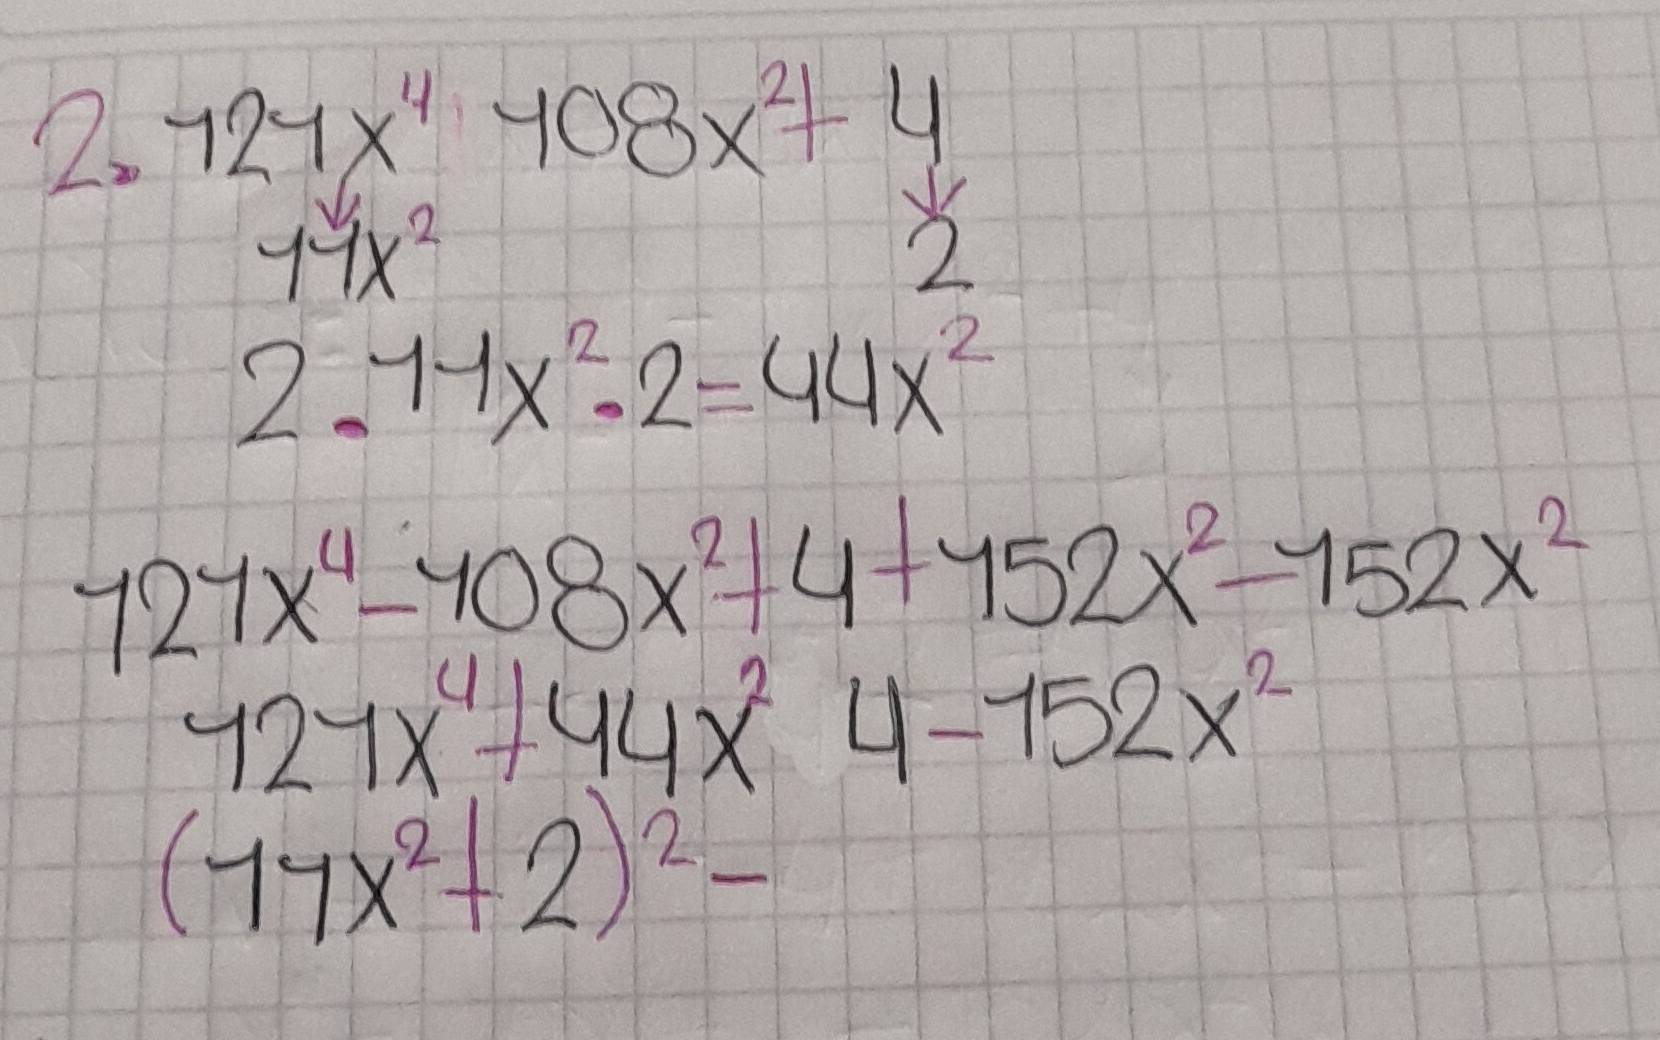 2. 121x⁴ 108x² + 4
11x² 2
2 . 11x² . 2 = 44x²
121x⁴ - 108x² + 4 + 152x² - 152x²
121x⁴ + 44x² 4 - 152x²
(11x² + 2)² -